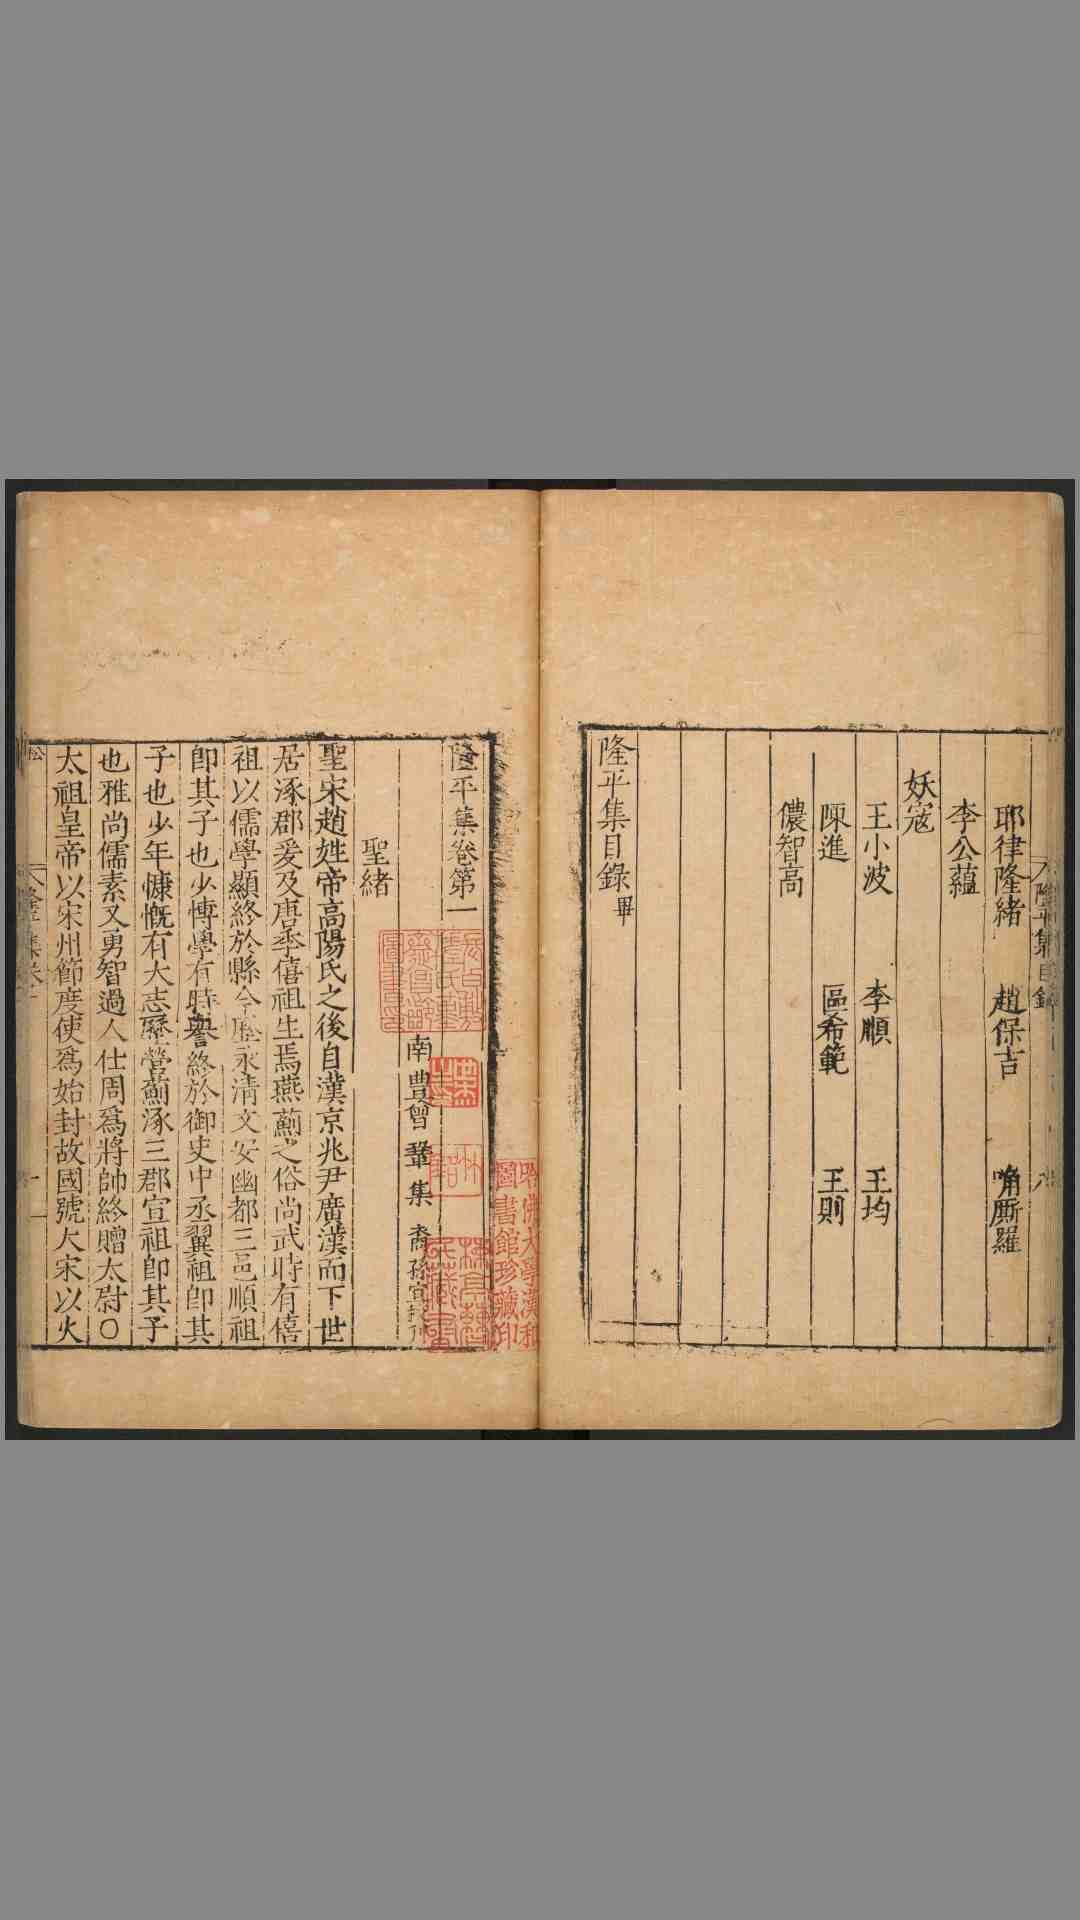 隆平集目錄
耶律隆緒 趙保吉 唃厮羅
李公蘊
妖寇
王小波 李順 王均
陳進 區希範 王則
儂智高
隆平集目錄畢
隆平集卷第一
南豊曾鞏集 裔孫宣
聖緒
聖宋趙姓帝高陽氏之後自漢京兆尹廣漢而下世
居涿郡爰及唐季僖祖生焉燕薊之俗尚武時有僖
祖以儒學顯終於縣令歷永清文安幽都三邑順祖
卽其子也少慱學有時譽終於御史中丞翼祖卽其
子也少年慷慨有大志歷營薊涿三郡宣祖卽其子
也雅尚儒素又勇智過人仕周爲將帥終贈太尉〇
太祖皇帝以宋州節度使爲始封故國號大宋以火
哈佛大學漢和
圖書館珍藏印